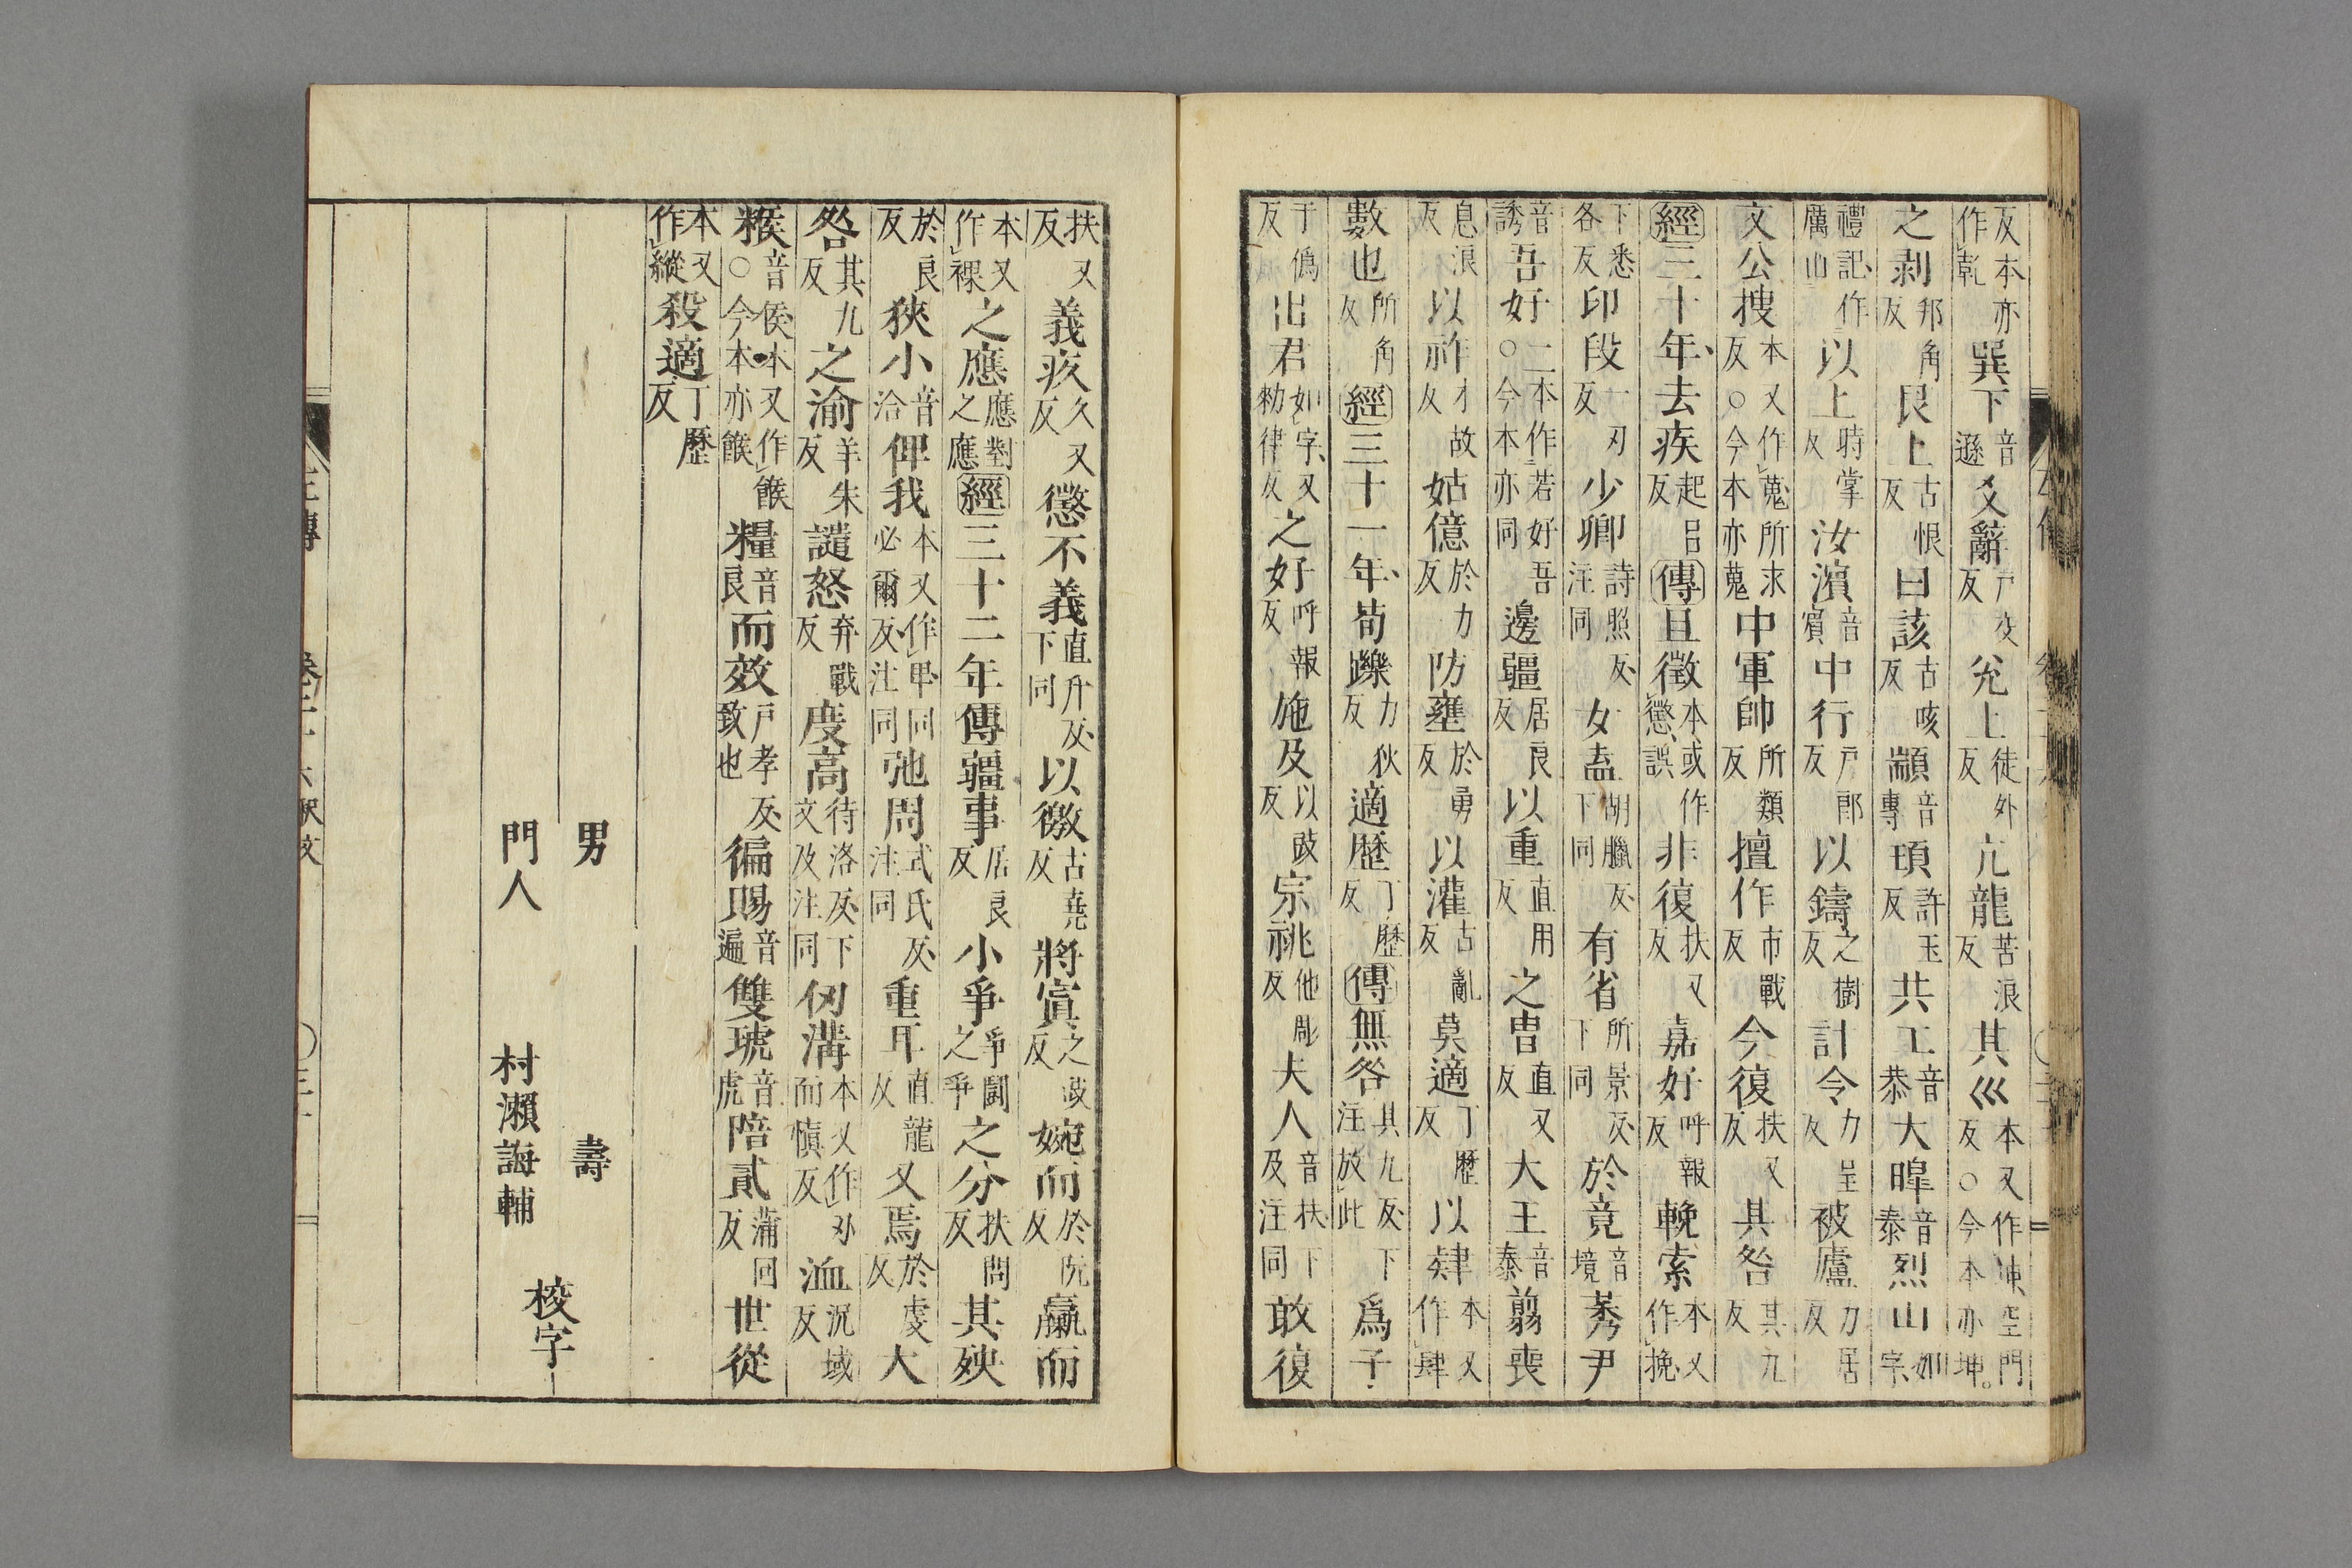 反本亦作乾巽下音遜爻辭戸交反兊上徒外反亢龍苦浪反其巛本又作𡿦空門反○今本亦坤。
之剥邦角反艮上古恨反曰該古咳反顓音專頊許玉反共工音恭大皥音泰烈山如字、
禮記、作厲山以上時掌反汝濱音賓中行戸郎反以鑄之樹反計令力呈反被廬力居反
文公搜本又作蒐、所求反○今本亦蒐中軍帥所類反擅作市戰反今復扶又反其咎其九反
經三十年、去疾起呂反傳且徵本或作懲、誤非復扶又反嘉好呼報反輓索本又作挽
下悉各反印段一刃反少卿詩照反、注同女盍胡臘反、下同有省所景反、下同於竟音境莠尹
音誘吾好二本作若好吾○今本亦同邊疆居良反以重直用反之冑直又反大王音泰翦喪
息浪反以祚才故反姑億於力反防壅於勇反以灌古亂反莫適丁歷反以肄本又作肆
數也所角反經三十一年、荀躒力狄反適歴丁歷反傳無咎其九反、下注放此爲子
于僞反出君如字、又勑律反之好呼報反施及以豉反宗祧他彫反夫人音扶、下及注同敢復
扶又反義疚久又反懲不義直升反、下同以徼古堯反將寘之豉反婉而於阮反羸而
本又作裸之應應對之應經三十二年傳疆事居良反小爭爭鬪之爭之分扶問反其殃
於良反狹小音洽俾我本又作卑、同必爾反、注同弛周式氏反、注同重耳直龍反又焉於虔反大
咎其九反之渝羊朱反譴怒弃戰反度高待洛反、下文及注同仞溝本又作刅而愼反洫況域反
糇音侯、本又作餱○今本亦餱糧音良而效戸孝反、致也徧賜音遍雙琥音虎陪貳蒲回反世從
本又作縱殺適丁歷反
男　壽
門人　村瀨誨輔
校字